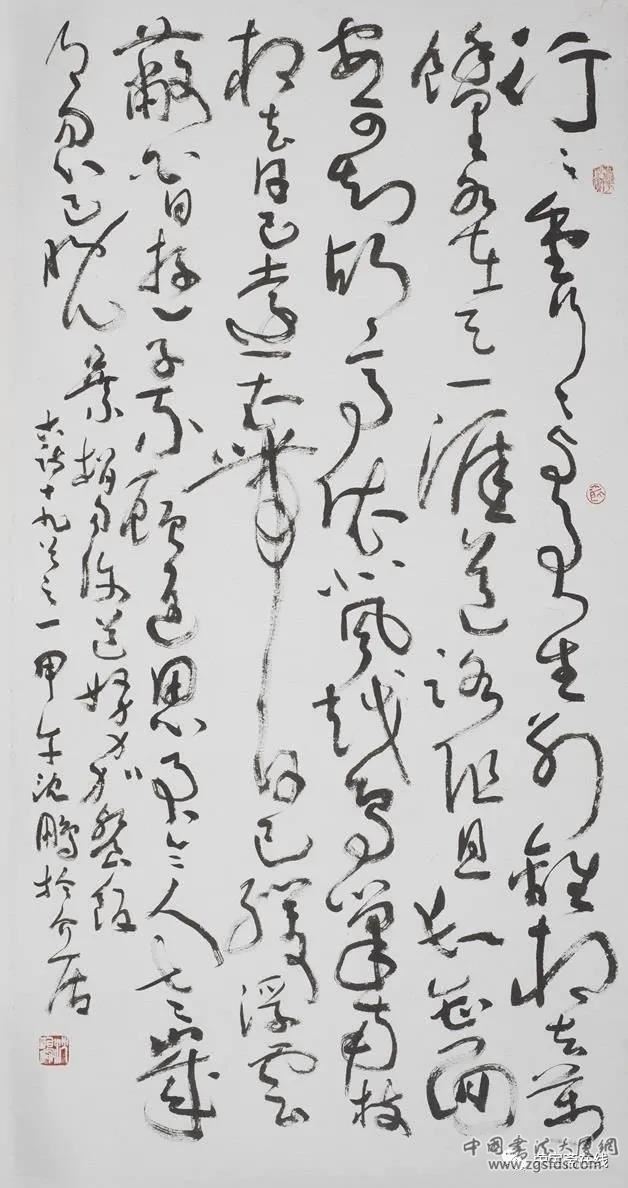 行々重行々與君生別離相去萬
餘里各在天一涯道路阻且長會面
安可知胡馬依北風越鳥巢南枝
相去日已遠衣帶日已緩浮雲
蔽白日遊子不顧返思君令人老歲
月忽已晚棄捐勿復道努力加餐飯
古詩十九首之一甲午沈鵬於介居
中國書法大網
www.zgsfds.com